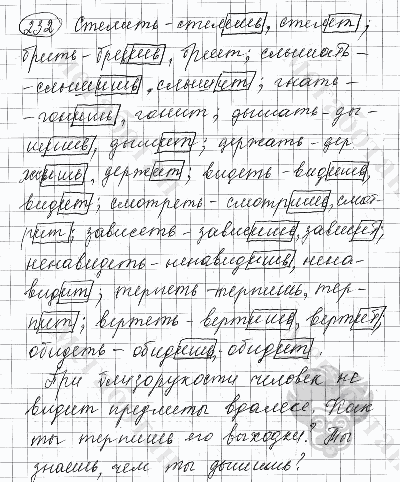 232 Стелить – стелешь, стелет;
брить – бреешь, бреет; слышать –
– слышишь, слышит; гнать –
– гонишь, гонит; дышать – ды-
шишь, дышит; держать – дер-
жишь, держит; видеть – видишь,
видит; смотреть – смотришь, смот-
рит; зависеть – зависишь, зависит;
ненавидеть – ненавидишь, нена-
видит; терпеть – терпишь, тер-
пит; вертеть – вертишь, вертит;
обидеть – обидишь, обидит.
При близорукости человек не
видит предметы вдалеке. Как
ты терпишь его выходки? Ты
знаешь, чем ты дышишь?